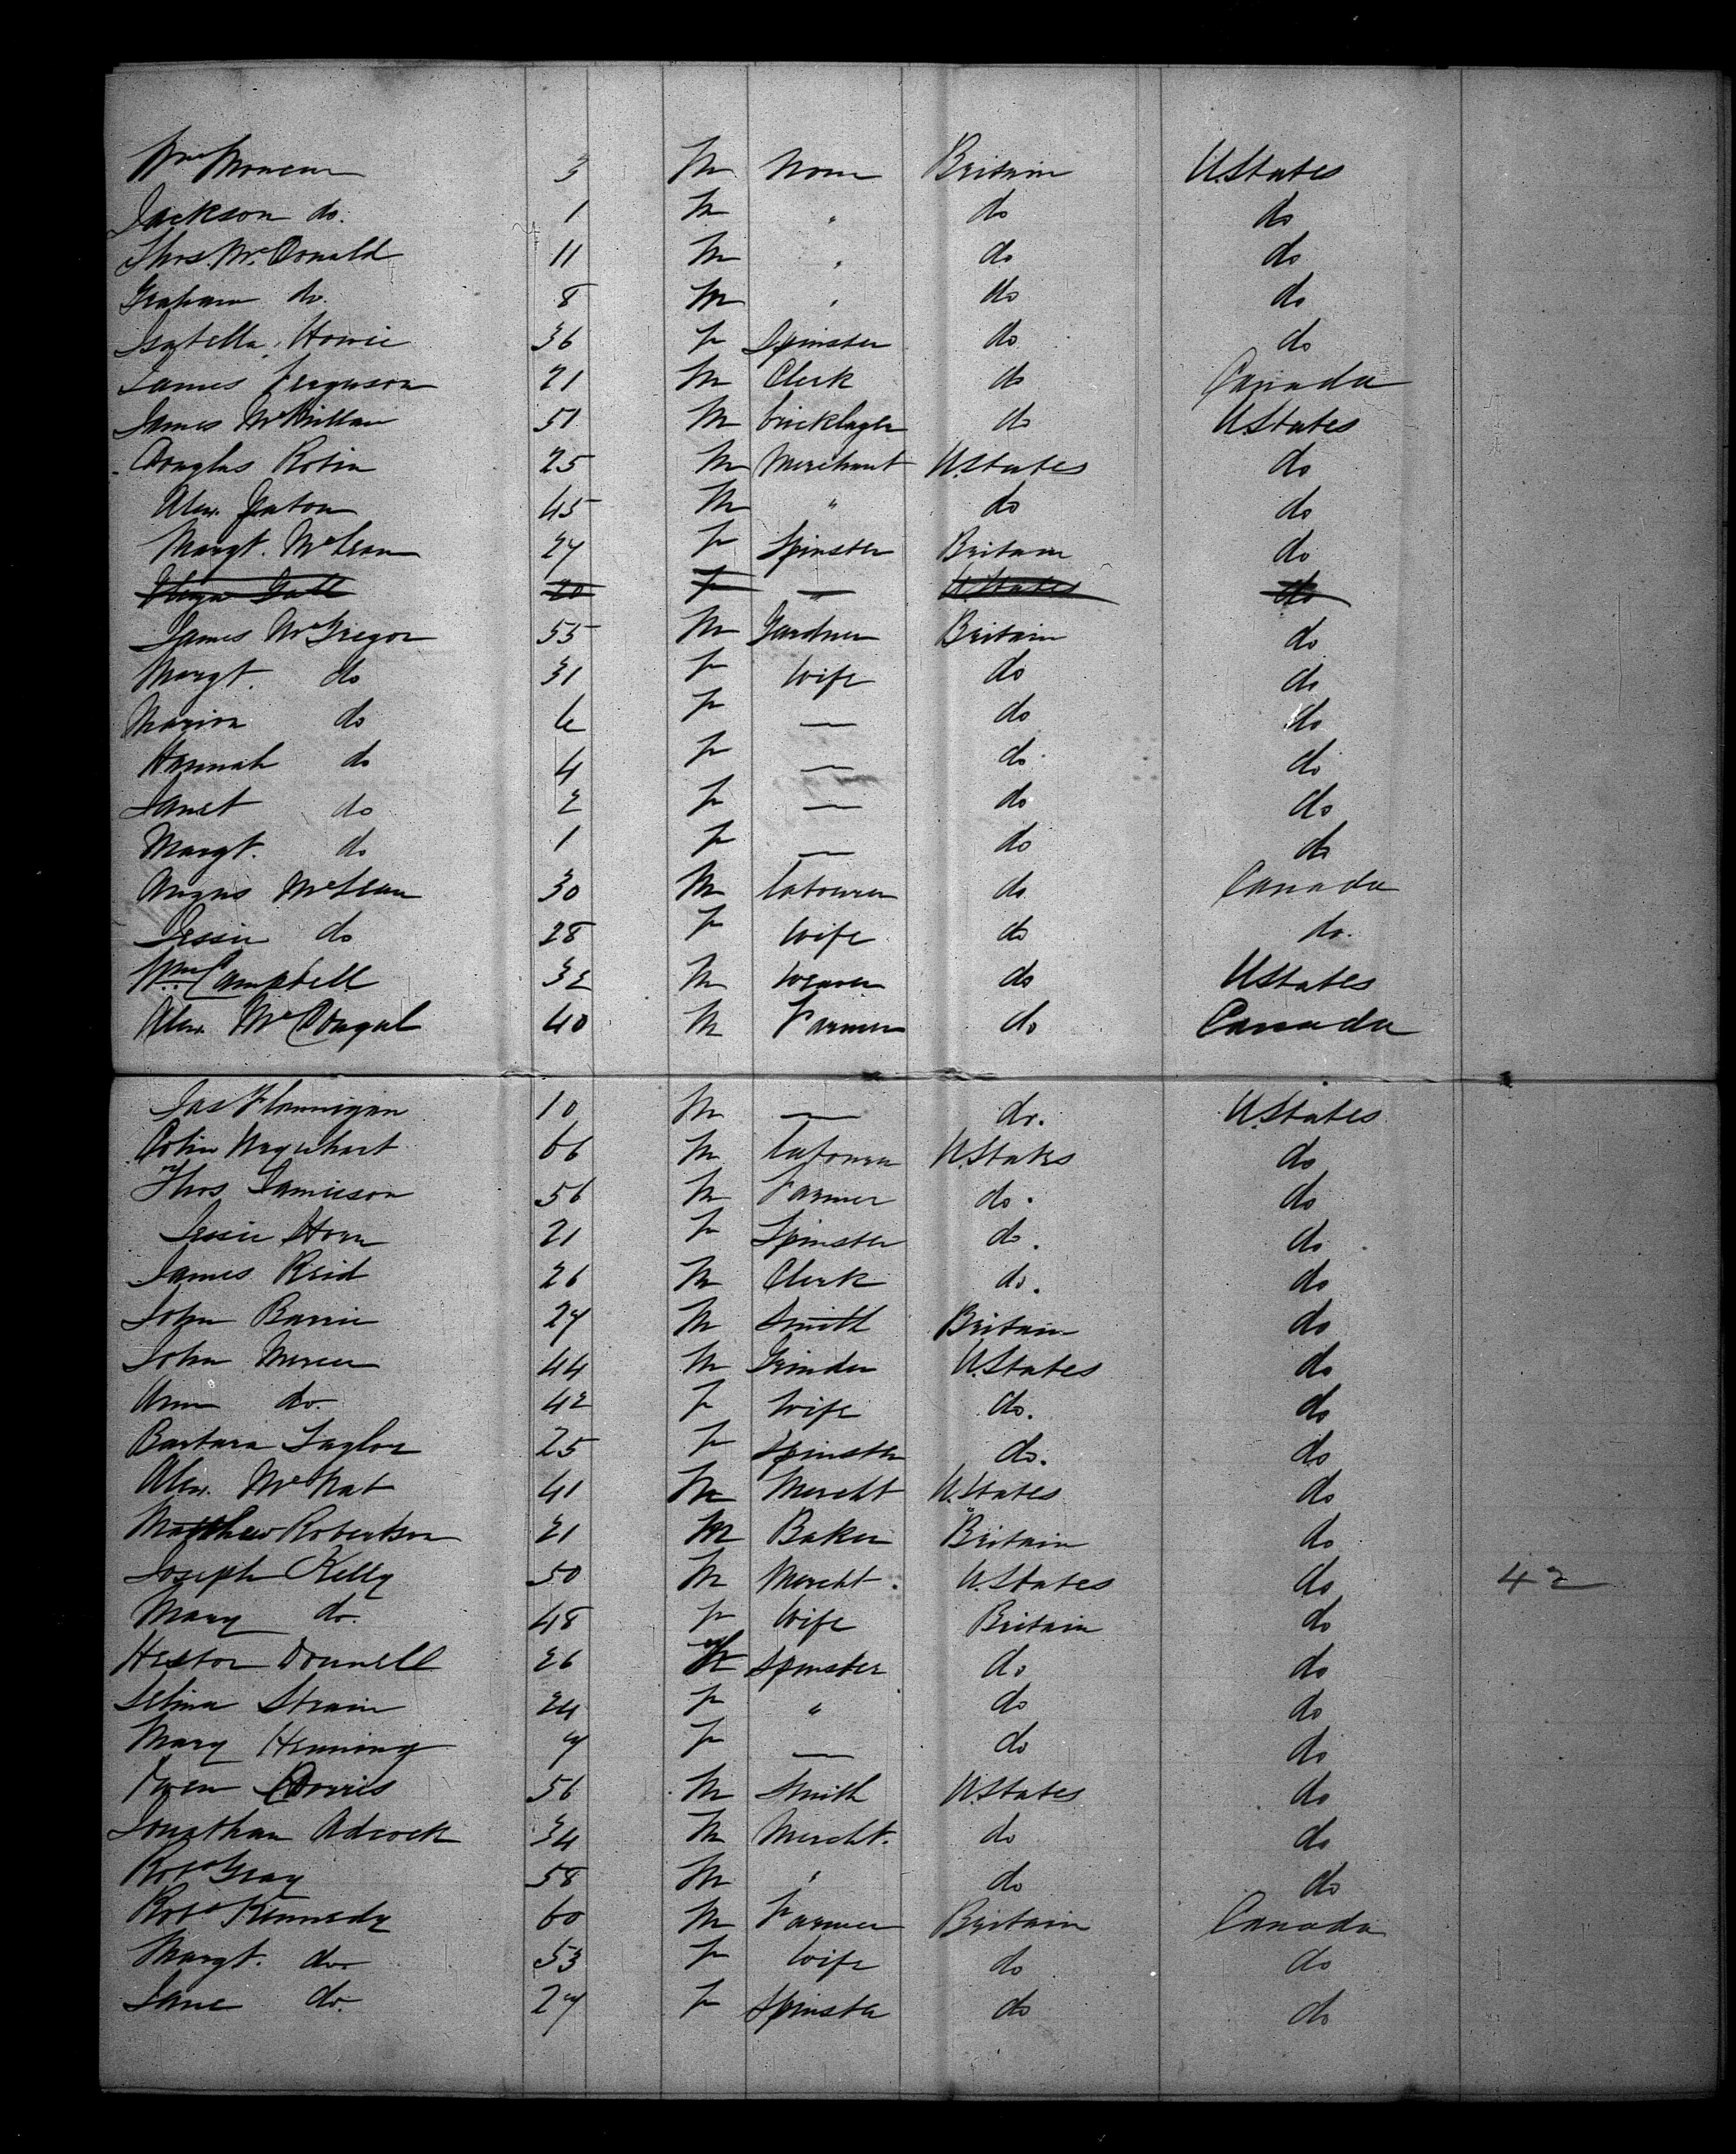 Wm Moncur 3 M None Britain U.States
Jackson do. 1 M " do do
Thos. McDonald 11 M " do do
Graham do. 8 M " do do
Isabella Howie 36 F Spinster do do
James Ferguson 21 M Clerk do Canada
James McMillan 51 M bricklayer do U.States
Douglas Robin 25 M Merchant U.States do
Alex. 45 M " do do
Margt. McLean 27 F Spinster Britain do
Galt 20 F — U.States do
James McGregor 55 M Gardner Britain do
Margt. do 31 F Wife do do
Marion do 6 F — do do
Hannah do 4 F — do do
Janet do 2 F — do do
Margt. do 1 F — do do
Angus McLean 30 M labourer do Canada
Jessie do 28 F Wife do do.
Wm. Campbell 32 M Weaver do U.States
Alex. McDougal 40 M Farmer do Canada
Jas Flannigan 10 M — do. U.States
Colin Urquhart 66 M labourer U.States do
Thos Jamieson 56 M Farmer do. do
Jessie Horn 21 F Spinster do. do
James Reid 26 M Clerk do. do
John Barrie 27 M Smith Britain do
John Mercer 44 M Grinder U.States do
Ann do. 42 F Wife do. do
Barbara Taylor 25 F Spinster do. do
Alex. McNab 41 M Mercht U.States do
Matthew Robertson 21 M Baker Britain do
Joseph Kelly 50 M Mercht. U.States do 42
Mary do. 48 F Wife Britain do
Hestor Donnell 26 F Spinster do do
Selina Strain 24 F " do do
Mary Henning 7 F — do do
Owen Dorris 56 M Smith U.States do
Jonathan Adcock 34 M Mercht. do do
Robt Gray 58 M " do do
Robt Kennedy 60 M Farmer Britain Canada
Margt. do. 53 F Wife do do
Jane do. 27 F Spinster do do